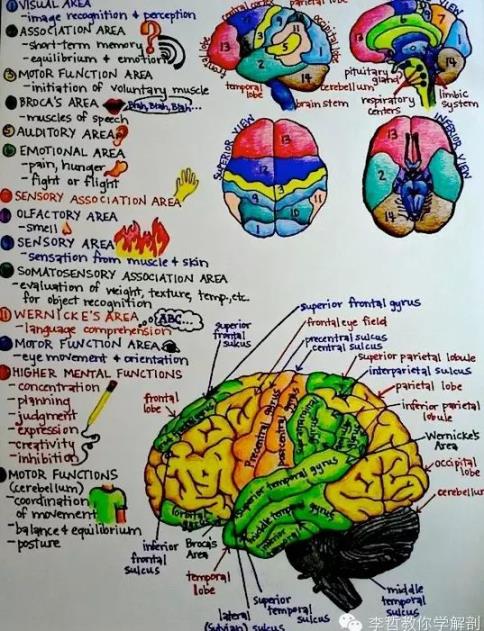 VISUAL AREA
-image recognition & perception
ASSOCIATION AREA
-short-term memory
-equilibrium & emotion
MOTOR FUNCTION AREA
-initiation of voluntary muscle
BROCA'S AREA
Blah, Blah, Blah...
-muscles of speech
AUDITORY AREA
EMOTIONAL AREA
-pain, hunger
-fight or flight
SENSORY ASSOCIATION AREA
OLFACTORY AREA
-smell
SENSORY AREA
-sensation from muscle & skin
SOMATOSENSORY ASSOCIATION AREA
-evaluation of weight, texture, temp, etc.
for object recognition
WERNICKE'S AREA
ABC...
-language comprehension
MOTOR FUNCTION AREA
-eye movement & orientation
HIGHER MENTAL FUNCTIONS
-concentration
-planning
-judgment
-expression
-creativity
-inhibition
MOTOR FUNCTIONS
(cerebellum)
-coordination
of movement
-balance & equilibrium
-posture
central cortex
parietal lobe
frontal lobe
occipital lobe
temporal lobe
cerebellum
brain stem
pituitary gland
respiratory centers
limbic system
SUPERIOR VIEW
INFERIOR VIEW
13
2
5
1
14
13
7
14
13
12
3
9
10
11
1
13
2
14
superior frontal gyrus
frontal eye field
precentral sulcus
central sulcus
superior frontal sulcus
superior parietal lobule
interparietal sulcus
parietal lobe
inferior parietal lobule
Wernicke's Area
occipital lobe
cerebellum
frontal lobe
Precentral gyrus
postcentral gyrus
supramarginal gyrus
superior temporal gyrus
middle temporal gyrus
orbital gyrus
inferior frontal sulcus
Broca's Area
temporal lobe
lateral (sylvian) sulcus
superior temporal sulcus
middle temporal sulcus
李哲教你学解剖